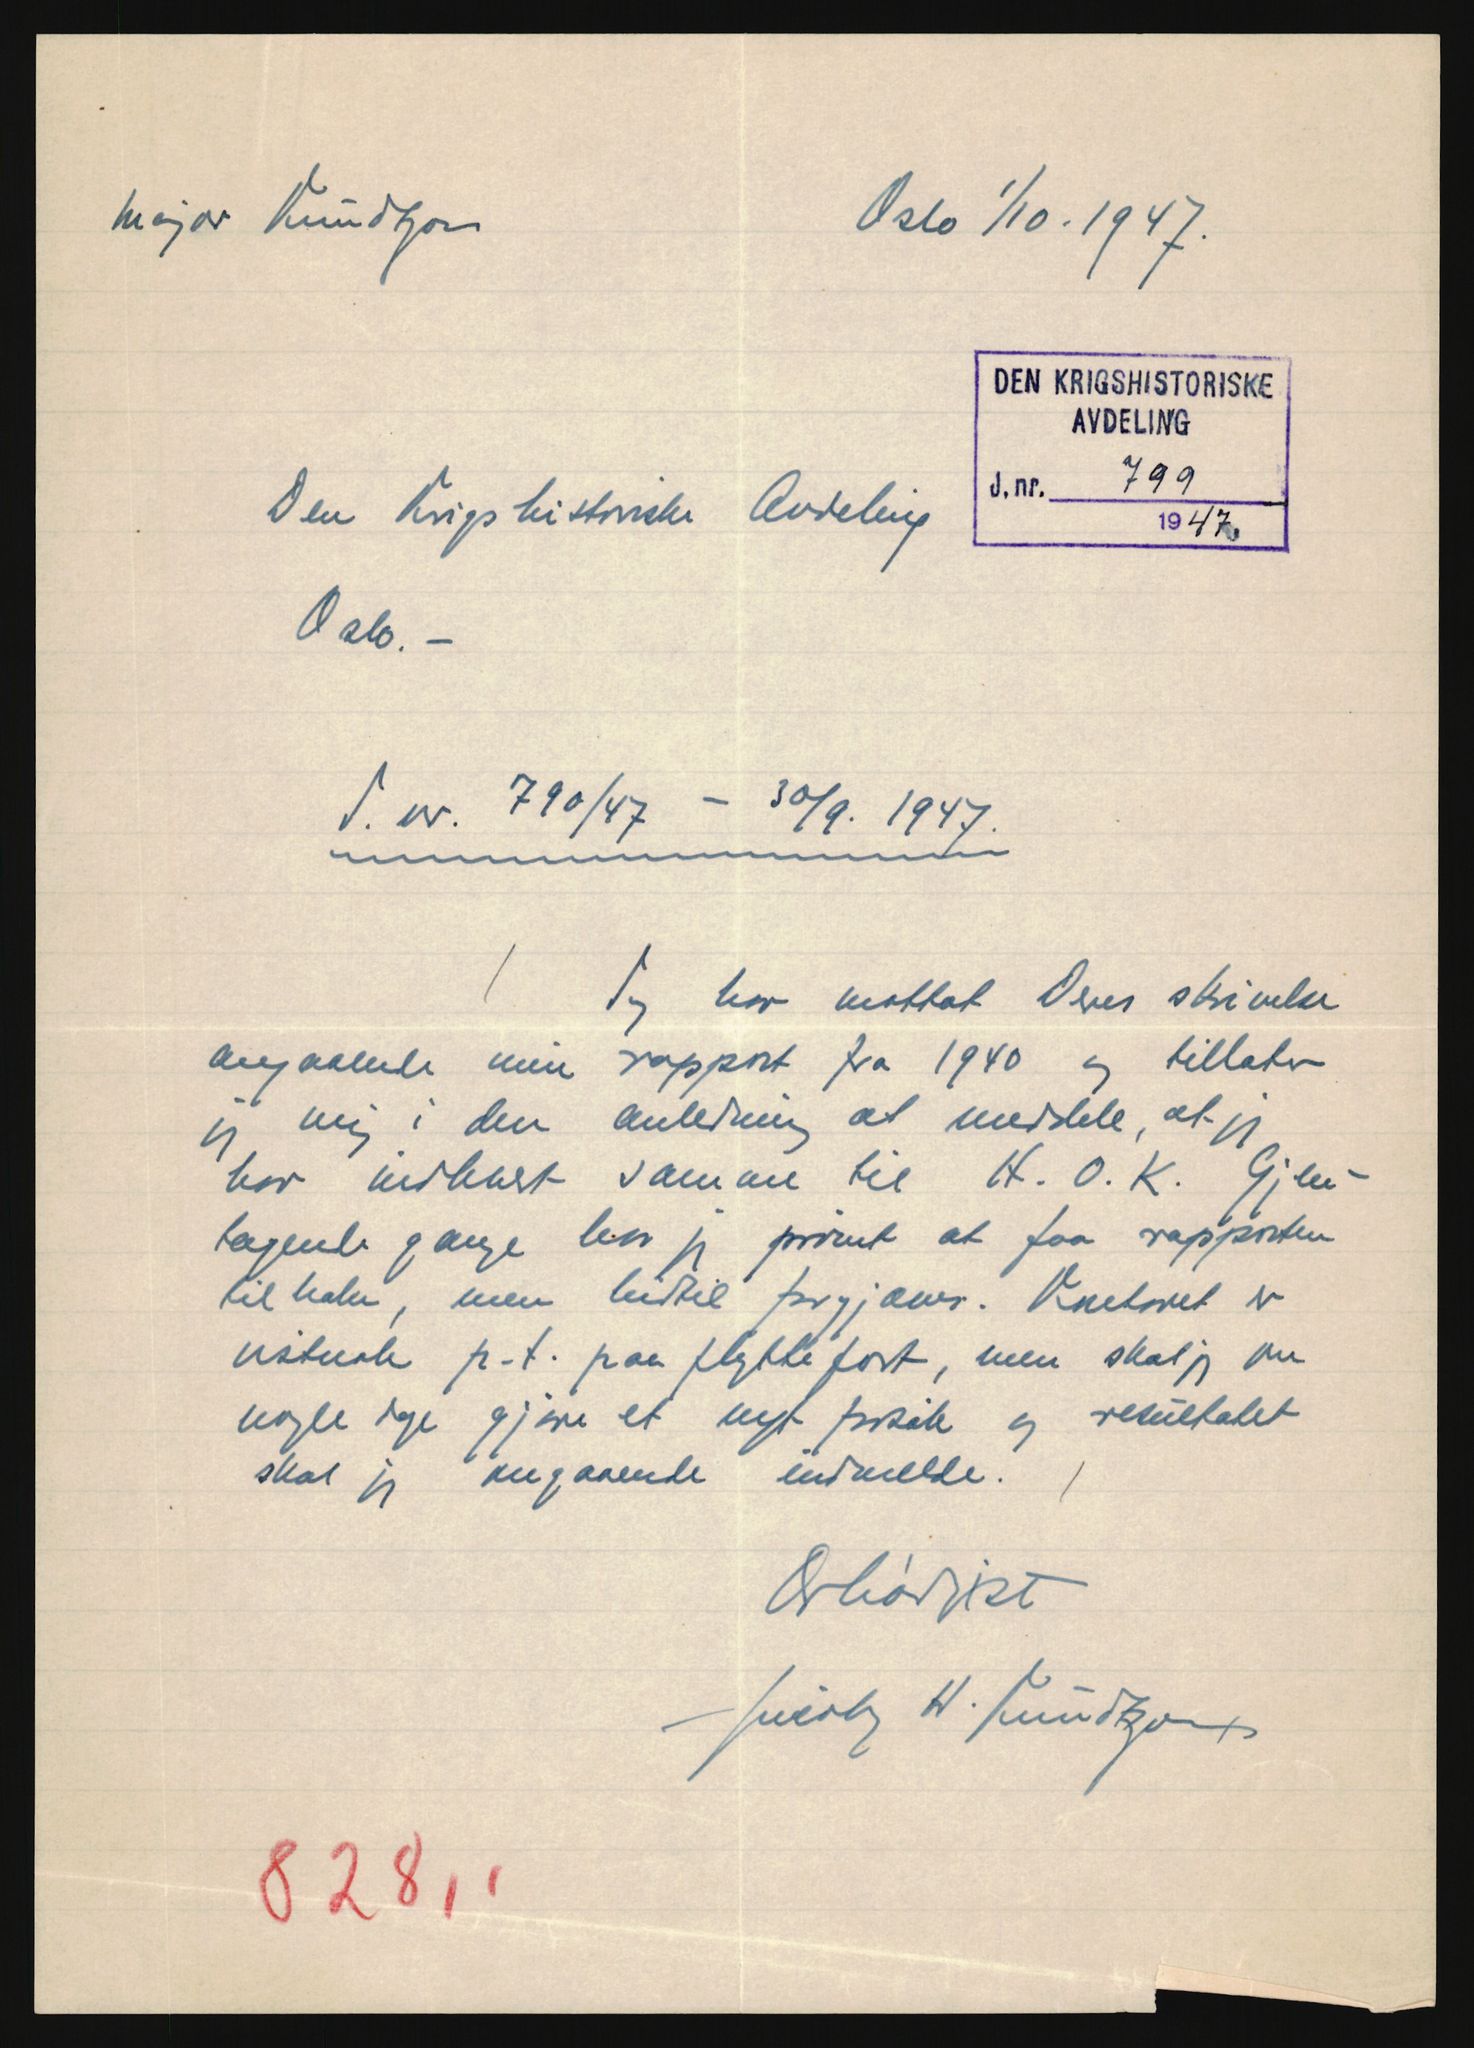 Major Knudtzon
Oslo 1/10. 1947.
DEN KRIGSHISTORISKE
AVDELING
J. nr. 799
1947.
Den Krigshistoriske Avdeling
Oslo. –
J. nr. 790/47 – 30/9. 1947.
Jeg har mottat Deres skrivelse
angaaende min rapport fra 1940 og tillater
jeg mig i den anledning at meddele, at jeg
har indlevert samme til H. O. K. Gjen-
tagende gange har jeg prøvet at faa rapporten
tilbake, men hidtil forgjæves. Kontoret er
vistnok p.t. paa flyttefot, men skal jeg om
nogle dage gjøre et nyt forsøk og resultatet
skal jeg omgaaende indmelde.
Ærbødigst
H. Knudtzon
828,,